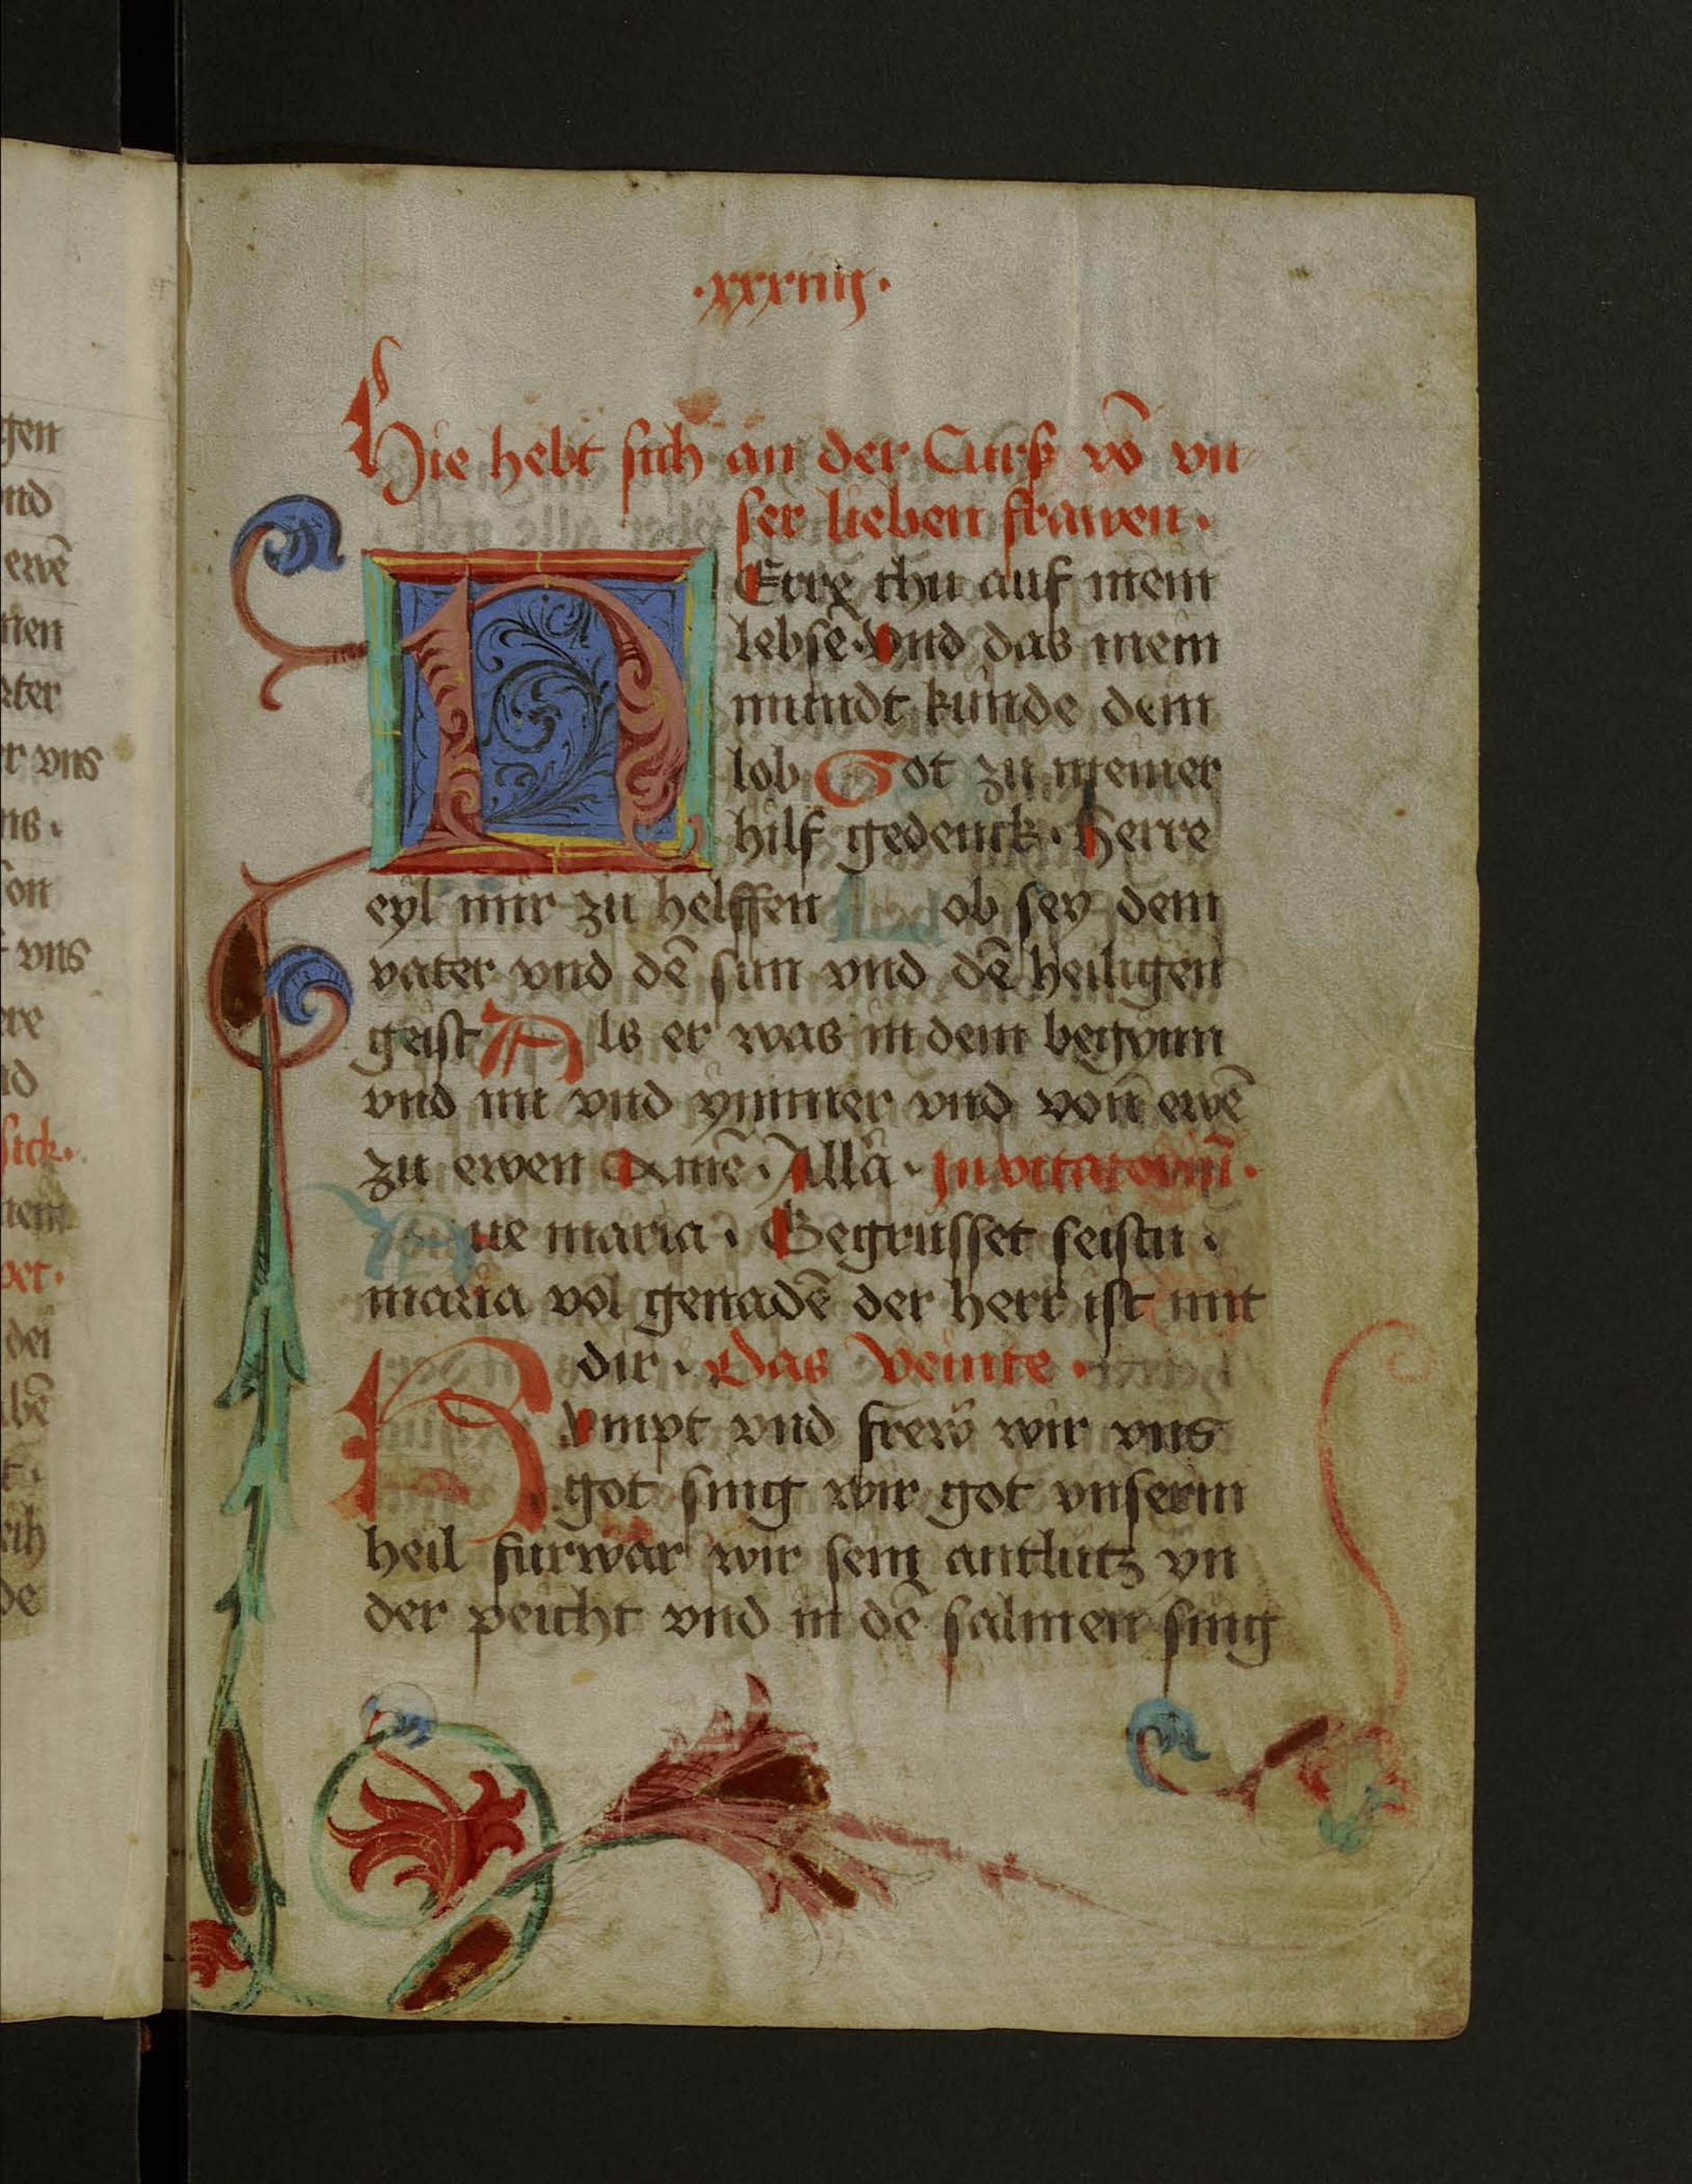 ·xxxiiij·
Hie hebt sich an der Curs vō vn
ser lieben frawen·
HErre thu auf mein
lebse· Vnd das mein
mundt kunde dein
lob Got zu meiner
hilf gedenck· Herre
eyl mir zu helffen Lob sey dem
vater vnd dē sun vnd dē heiligen
geist Als er was in dem begynn
vnd nu vnd ymmer vnd von ewē
zu ewen Amē· Alla· Inuitatoriū·
Aue maria· Begrusset seistu·
maria vol genadē der herr ist mit
dir· Das Venite·
Kumpt vnd frew wir vns
got sing wir got vnserm
heil furwar wir sein antlutz yn
der peicht vnd in dē salmen sing
gen
vnd
ewē
ter
er vns
vns
sick·
dei
de